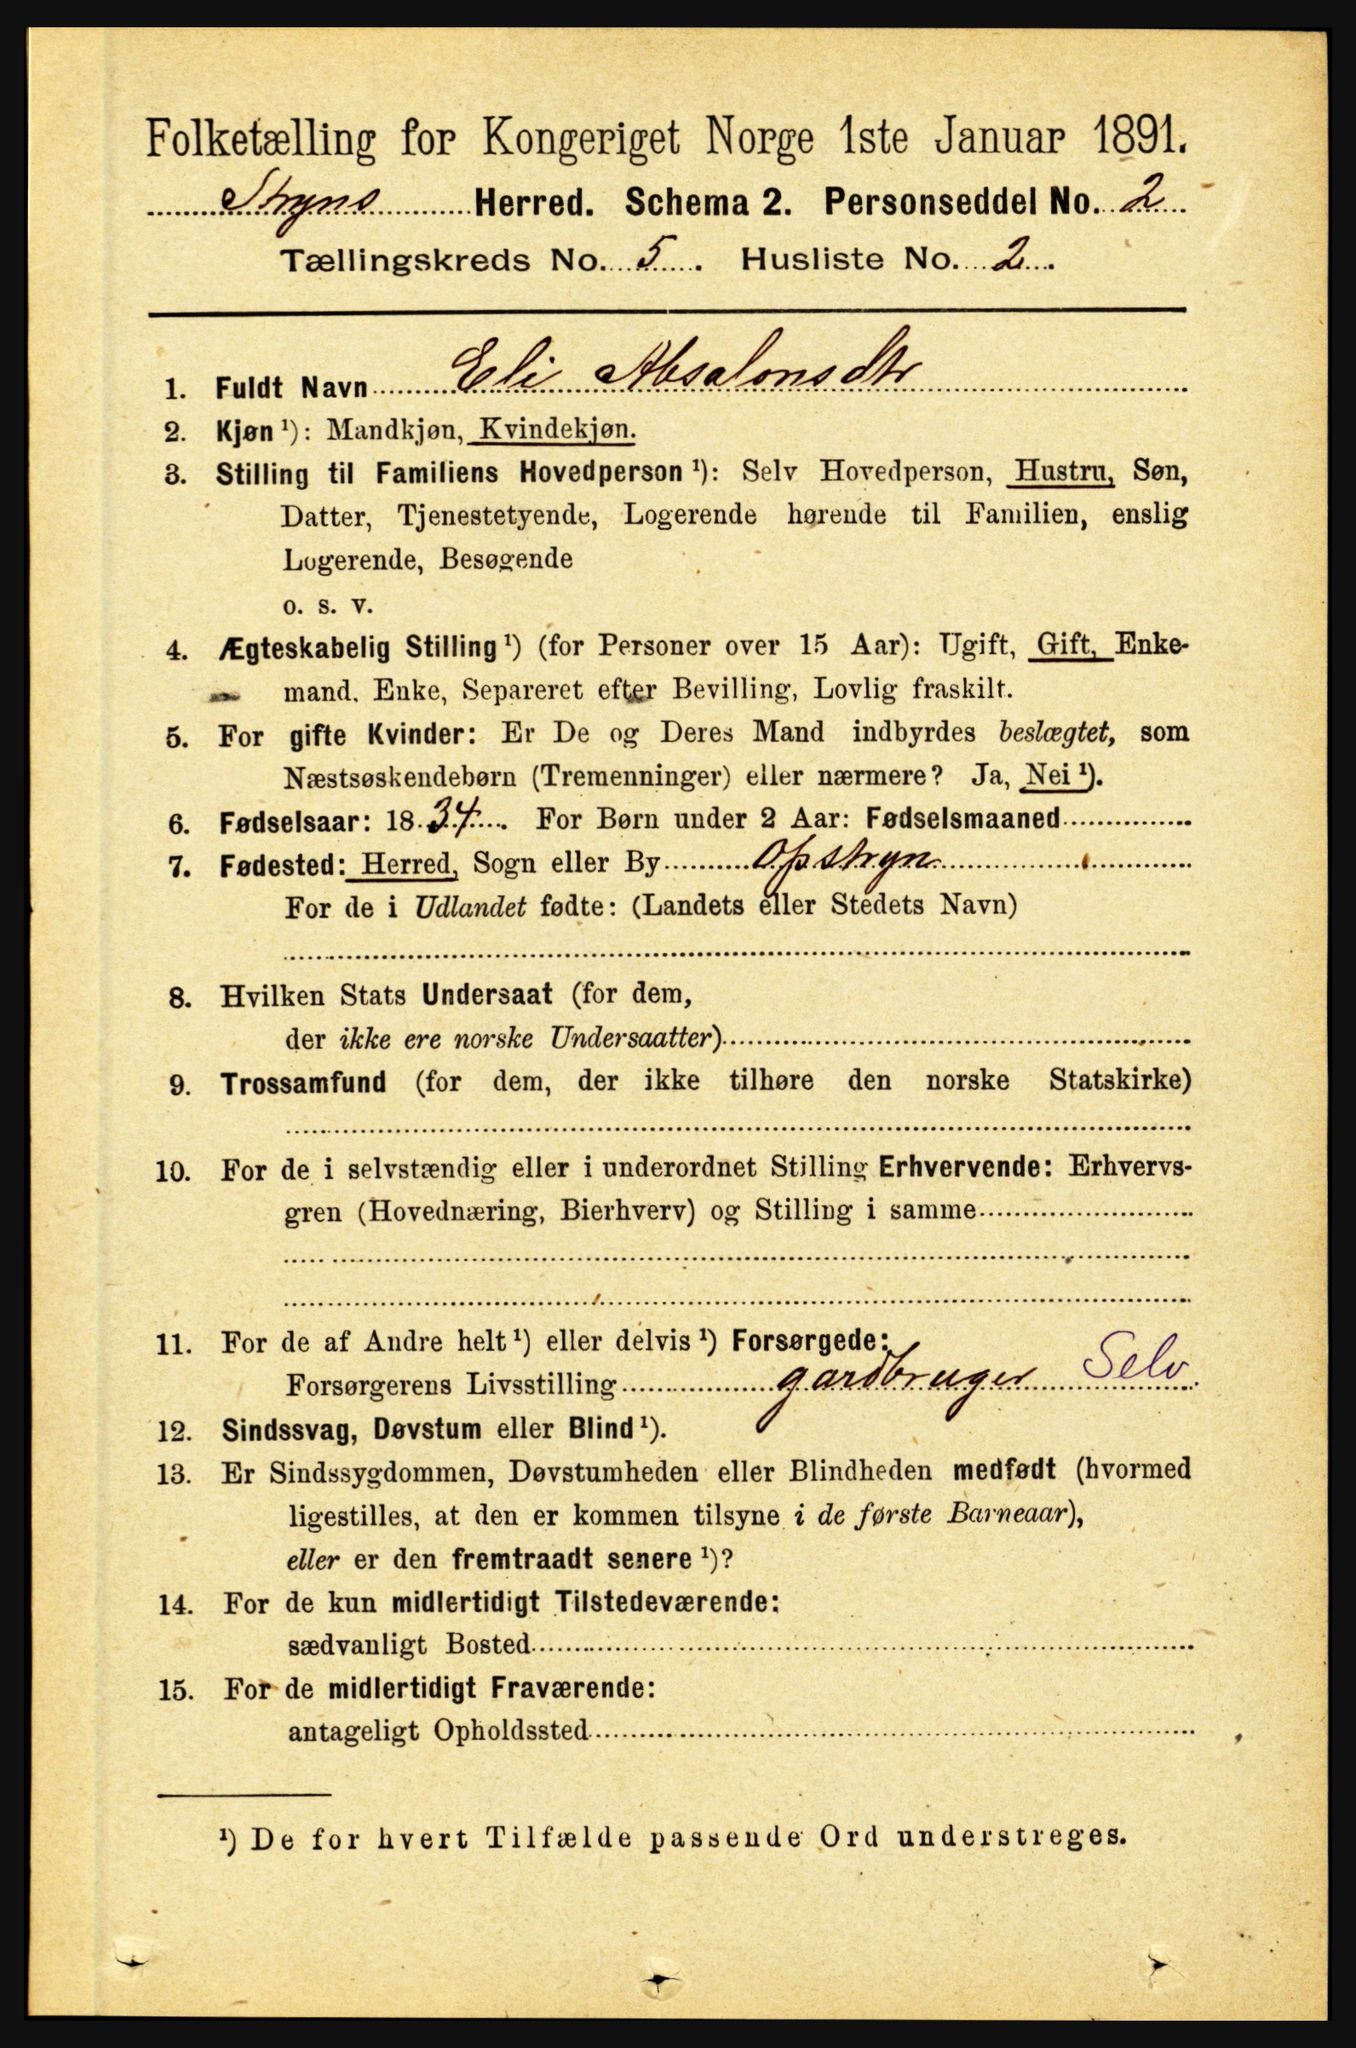 Folketælling for Kongeriget Norge 1ste Januar 1891.
Stryns Herred. Schema 2. Personseddel No. 2
Tællingskreds No. 5. Husliste No. 2.
1. Fuldt Navn Eli Absalonsdtr
2. Kjøn ¹): Mandkjøn, Kvindekjøn.
3. Stilling til Familiens Hovedperson ¹): Selv Hovedperson, Hustru, Søn,
Datter, Tjenestetyende, Logerende hørende til Familien, enslig
Logerende, Besøgende
o. s. v.
4. Ægteskabelig Stilling ¹) (for Personer over 15 Aar): Ugift, Gift, Enke-
mand, Enke, Separeret efter Bevilling, Lovlig fraskilt.
5. For gifte Kvinder: Er De og Deres Mand indbyrdes beslægtet, som
Næstsøskendebørn (Tremenninger) eller nærmere? Ja, Nei ¹).
6. Fødselsaar: 1834. For Børn under 2 Aar: Fødselsmaaned
7. Fødested: Herred, Sogn eller By Opstryn
For de i Udlandet fødte: (Landets eller Stedets Navn)
8. Hvilken Stats Undersaat (for dem,
der ikke ere norske Undersaatter)
9. Trossamfund (for dem, der ikke tilhøre den norske Statskirke)
10. For de i selvstændig eller i underordnet Stilling Erhvervende: Erhvervs-
gren (Hovednæring, Bierhverv) og Stilling i samme
11. For de af Andre helt ¹) eller delvis ¹) Forsørgede:
Forsørgerens Livsstilling gardbruger Selv
12. Sindssvag, Døvstum eller Blind ¹).
13. Er Sindssygdommen, Døvstumheden eller Blindheden medfødt (hvormed
ligestilles, at den er kommen tilsyne i de første Barneaar),
eller er den fremtraadt senere ¹)?
14. For de kun midlertidigt Tilstedeværende:
sædvanligt Bosted
15. For de midlertidigt Fraværende:
antageligt Opholdssted
¹) De for hvert Tilfælde passende Ord understreges.